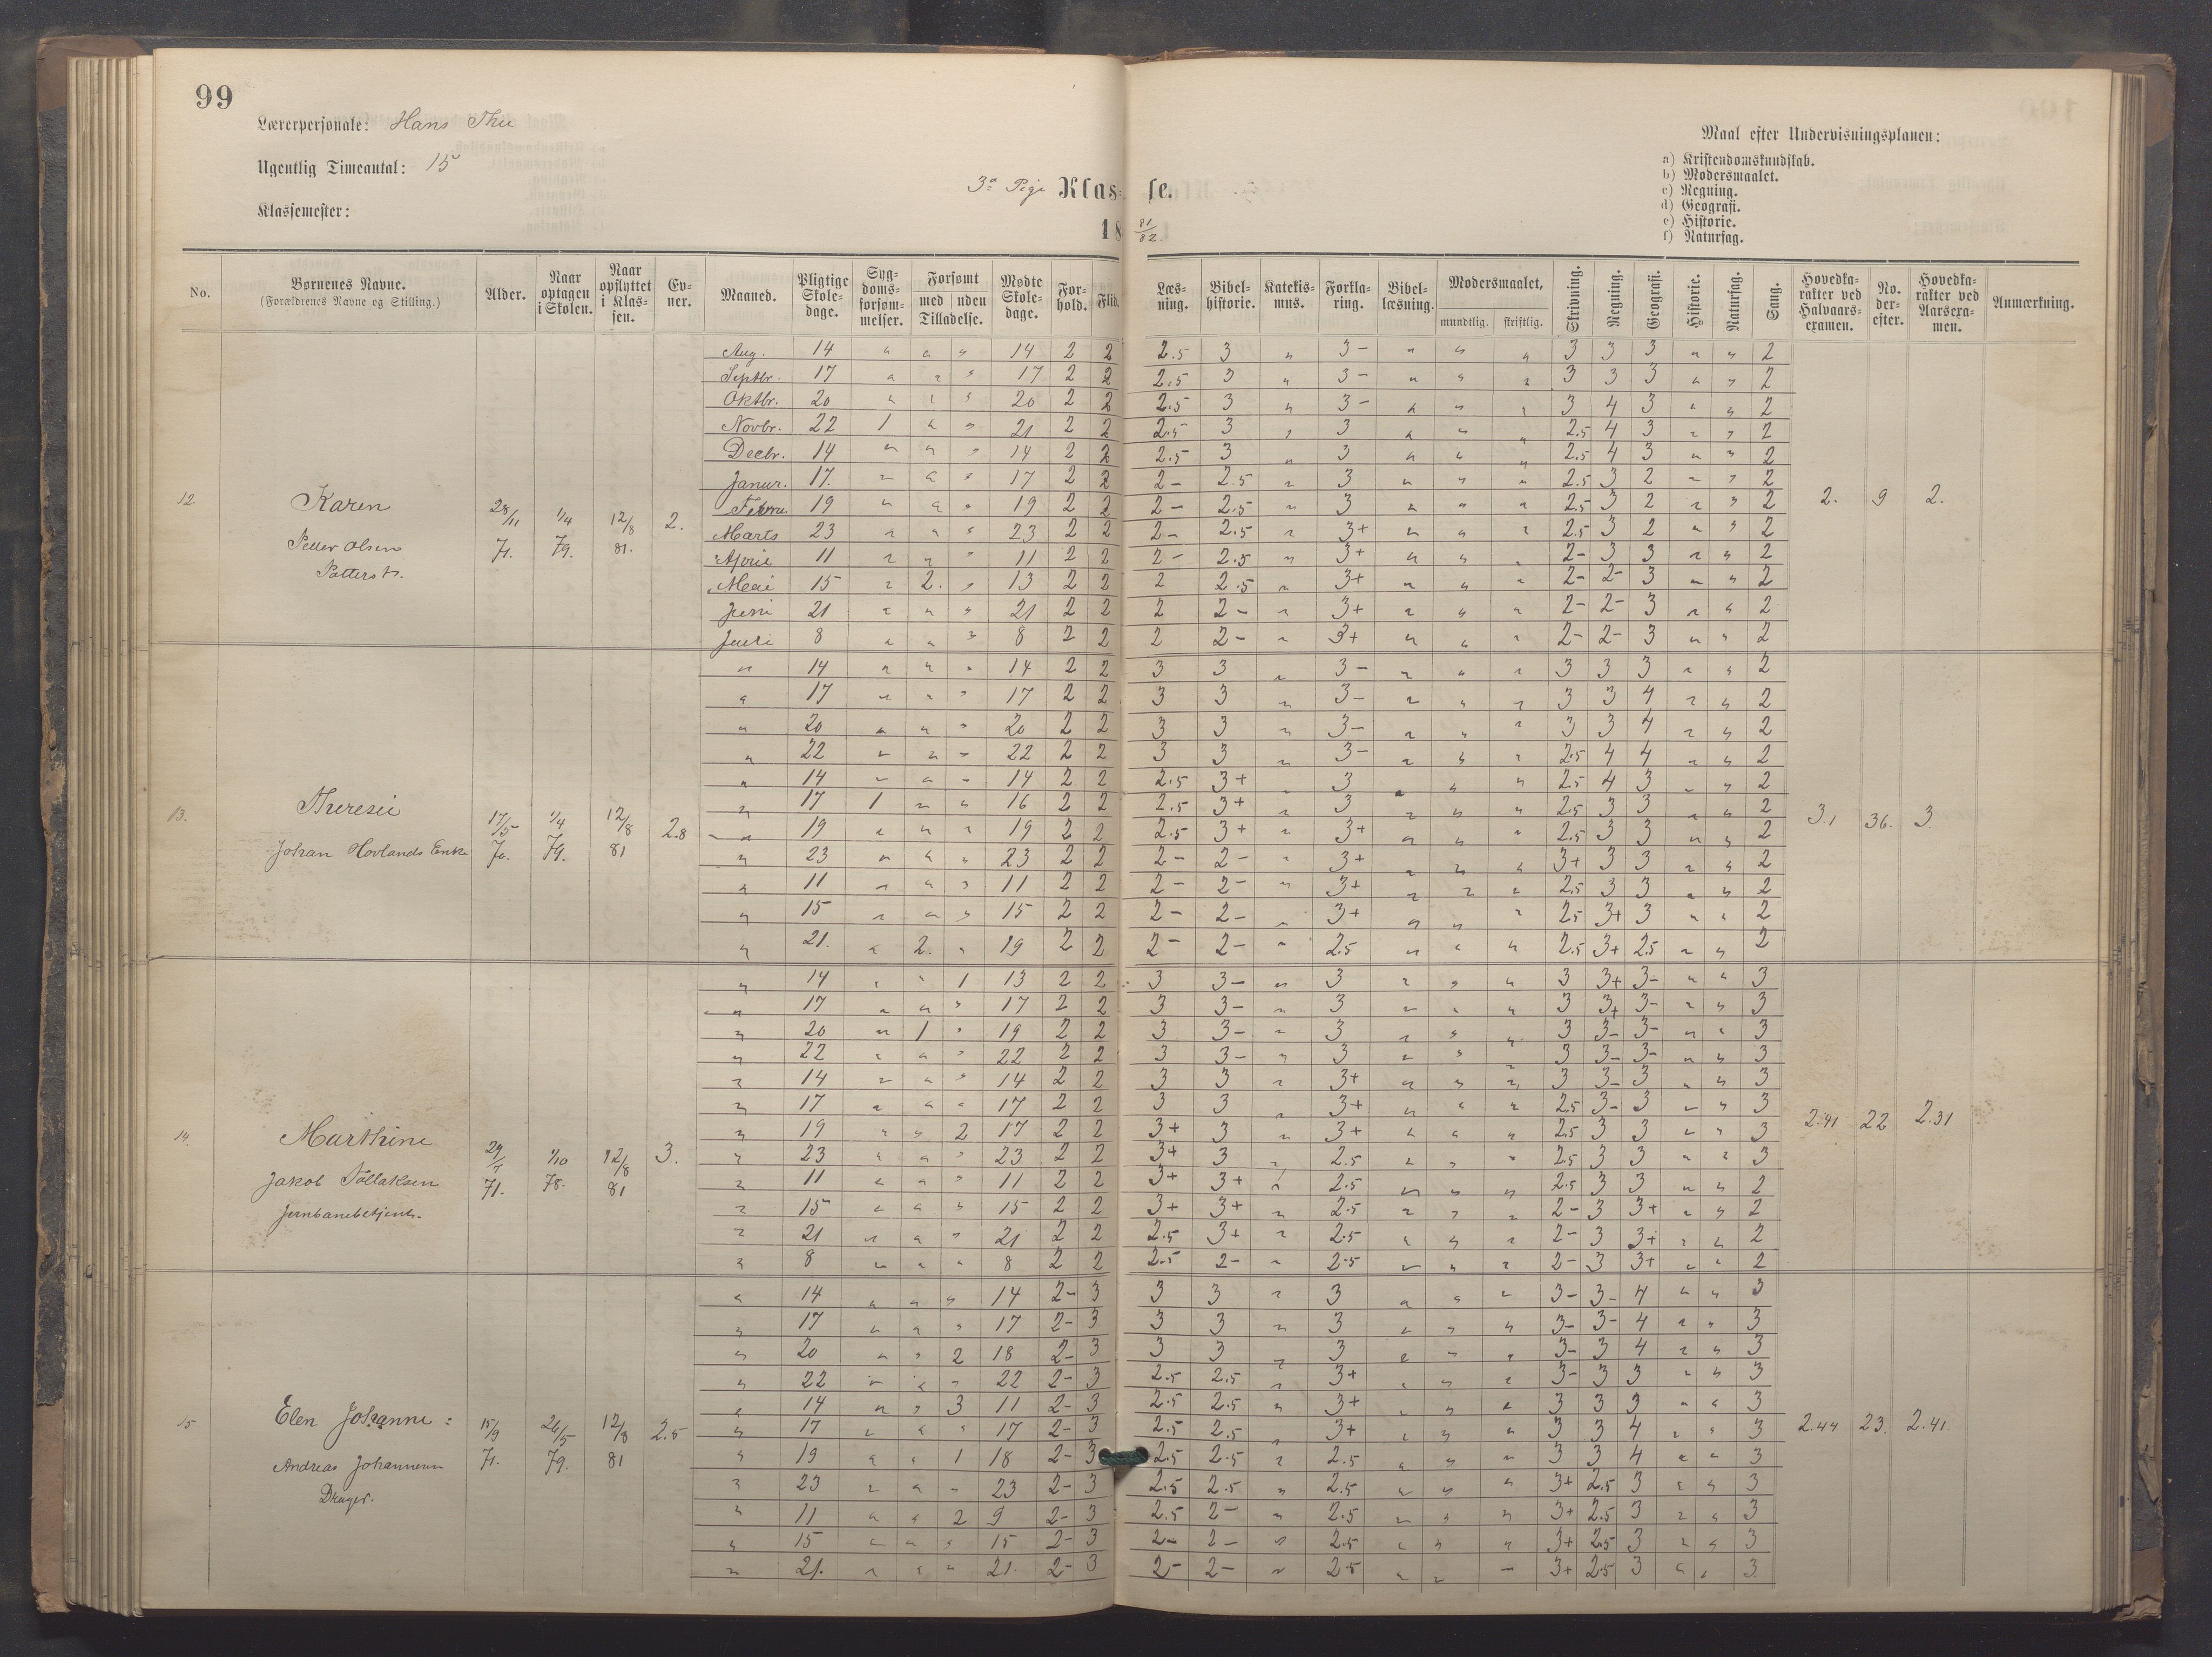 99
Lærerpersonale: Hans Thu
Ugentlig Timeantal: 15
Klassemester:
3a Pige Klas= se.
18 81/82.
Maal efter Undervisningsplanen:
a) Kristendomskundskab.
b) Modersmaalet.
c) Regning.
d) Geografi.
e) Historie.
f) Naturfag.
No. Børnenes Navne. (Forældrenes Navne og Stilling.) Alder. Naar optagen i Skolen. Naar opflyttet i Klas-sen. Ev-ner. Maaned. Pligtige Skole-dage. Syg-doms-forsøm-melser. Forsømt med uden Tilladelse. Mødte Skole-dage. For-hold. Flid. Læs-ning. Bibel-historie. Katekis-mus. Forkla-ring. Bibel-læsning. Modersmaalet, mundtlig. skriftlig. Skrivning. Regning. Geografi. Historie. Naturfag. Sang. Hovedka-rakter ved Halvaars-examen. No. der-efter. Hovedka-rakter ved Aarsexa-men. Anmærkning.
12. Karen
Peder Olsen
28/11 71. 1/4 79. 12/8 81. 2.
Aug. 14 " " " 14 2 2 2.5 3 " 3- " " " 3 3 3 " " 2
Septbr. 17 " " " 17 2 2 2.5 3 " 3- " " " 3 3 3 " " 2
Oktbr. 20 " " " 20 2 2 2.5 3 " 3- " " " 3 4 3 " " 2
Novbr. 22 1 " " 21 2 2 2.5 3 " 3 " " " 2.5 4 3 " " 2
Decbr. 14 " " " 14 2 2 2.5 3 " 3 " " " 2.5 4 3 " " 2
Janur. 17. " " " 17 2 2 2- 2.5 " 3 " " " 2.5 3 2 " " 2
Febru 19 " " " 19 2 2 2- 2.5 " 3 " " " 2.5 3 2 " " 2
Marts 23 " " " 23 2 2 2- 2.5 " 3+ " " " 2.5 3 2 " " 2
April 11 " " " 11 2 2 2- 2.5 " 3+ " " " 2- 3 3 " " 2
Mai 15 " 2. " 13 2 2 2 2.5 " 3+ " " " 2- 2- 3 " " 2
Juni 21 " " " 21 2 2 2 2- " 3+ " " " 2- 2- 3 " " 2
Juli 8 " " " 8 2 2 2 2- " 3+ " " " 2- 2- 3 " " 2
2. 9 2.
13. Theresie
Johan Hovlands Enke
17/5 70. 1/4 79. 12/8 81 2.8
" 14 " " " 14 2 2 3 3 " 3- " " " 3 3 3 " " 2
" 17 " " " 17 2 2 3 3 " 3- " " " 3 3 4 " " 2
" 20 " " " 20 2 2 3 3 " 3- " " " 3 3 4 " " 2
" 22 " " " 22 2 2 3 3 " 3- " " " 2.5 4 4 " " 2
" 14 " " " 14 2 2 2.5 3+ " 3 " " " 2.5 4 3 " " 2
" 17 1 " " 16 2 2 2.5 3+ " 3 " " " 2.5 3 3 " " 2
" 19 " " " 19 2 2 2.5 3+ " 3+ " " " 2.5 3 3 " " 2
" 23 " " " 23 2 2 2- 2- " 3+ " " " 3+ 3 3 " " 2
" 11 " " " 11 2 2 2- 2- " 3+ " " " 2.5 3 3 " " 2
" 15 " " " 15 2 2 2- 2- " 3+ " " " 2.5 3+ 3 " " 2
" 21. " 2. " 19 2 2 2- 2- " 2.5 " " " 2.5 3+ 2.5 " " 2
3.1 36. 3.
14. Marthine
Jakob Tollaksen
Jernbanebetjent.
71. 1/10 78. 12/8 81 3.
" 14 " " 1 13 2 2 3 3- " 3 " " " 3 3+ 3- " " 3
" 17 " " " 17 2 2 3 3- " 3 " " " 3 3+ 3- " " 3
" 20 " 1 " 19 2 2 3 3- " 3 " " " 3 3- 3- " " 3
" 22 " " " 22 2 2 3 3- " 3 " " " 3 3- 3- " " 3
" 14 " " " 14 2 2 3 3 " 3+ " " " 3 3- 3 " " 3
" 17 " " " 17 2 2 3 3 " 3+ " " " 2.5 3- 3 " " 3
" 19 " " 2 17 2 2 3+ 3 " 3+ " " " 2.5 3 3 " " 3
" 23 " " " 23 2 2 3+ 3 " 2.5 " " " 2.5 3 3 " " 3
" 11 " " " 11 2 2 3+ 3+ " 2.5 " " " 2.5 3 3 " " 2
" 15 " " " 15 2 2 3+ 3+ " 2.5 " " " 2- 3 3+ " " 2
" 21 " " " 21 2 2 2.5 3+ " 2.5 " " " 2- 3 3+ " " 2
" 8 " " " 8 2 2 2.5 2- " 2.5 " " " 2- 3 3+ " " 2
2.41 22 2.31
15 Elen Johanne:
Andreas Johannesen
Drager.
15/9 71. 26/5 79. 12/8 81 2.5
" 14 " " " 14 2- 3 3 3 " 3 " " " 3- 3- 4 " " 3
" 17 " " " 17 2- 3 3 3 " 3 " " " 3- 3- 4 " " 3
" 20 " " 2 18 2- 3 3 3 " 3 " " " 3- 3 4 " " 3
" 22 " " " 22 2- 3 2.5 2.5 " 3+ " " " 3- 3 3 " " 3
" 14 " " 3 11 2- 3 2.5 2.5 " 3+ " " " 3 3 3 " " 3
" 17 " " " 17 2- 3 2.5 2.5 " 3+ " " " 3 3 4 " " 3
" 19 " " 1 18 2- 3 2.5 2.5 " 2.5 " " " 3 3 4 " " 3
" 23 " " " 23 2- 3 2.5 2.5 " 2.5 " " " 3+ 2.5 3 " " 3
" 11 " " 2 9 2- 3 2.5 2- " 2.5 " " " 3+ 2.5 3 " " 3
" 15 " " " 15 2- 3 2- 2- " 2.5 " " " 3+ 2.5 3 " " 3
" 21. " " " 21. 2- 3 2- 2- " 2.5 " " " 3+ 2.5 3 " " 3
2.44 23. 2.41.